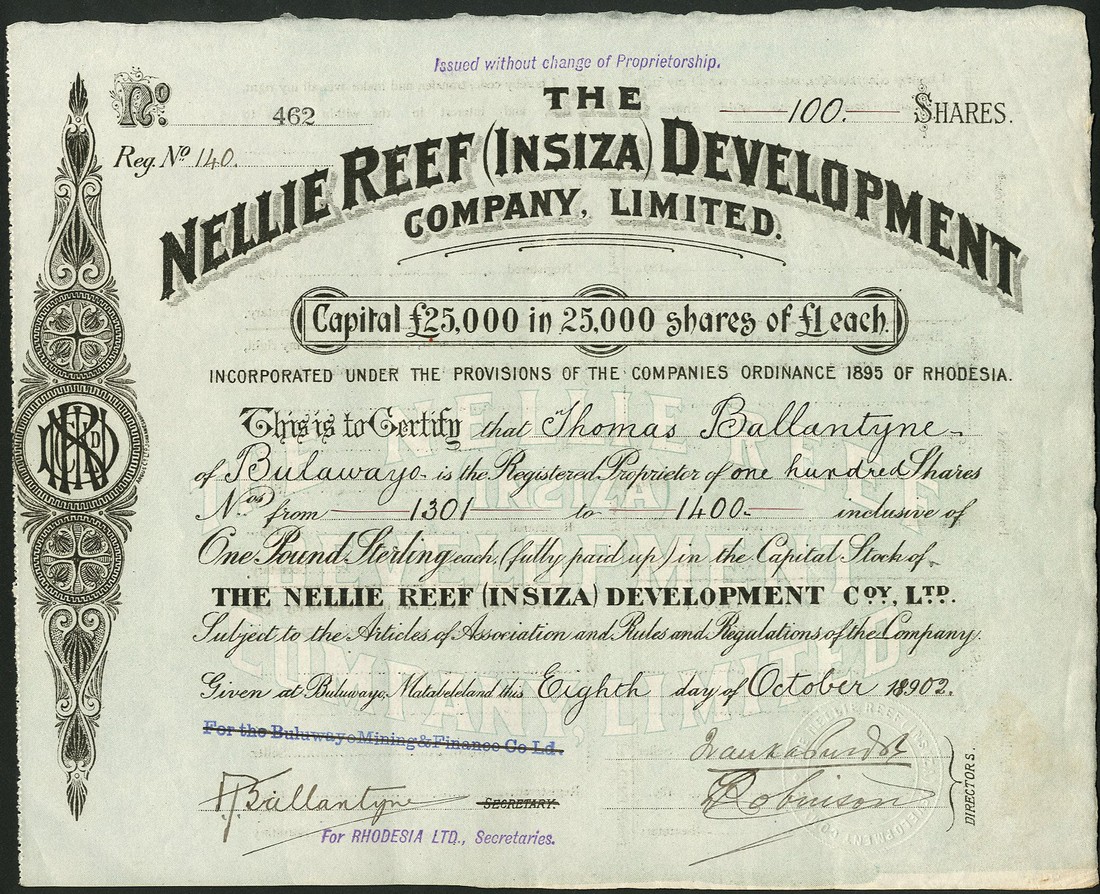 Issued without change of Proprietorship.
No. 462
THE
100. SHARES.
Reg. No 140.
NELLIE REEF (INSIZA) DEVELOPMENT
COMPANY, LIMITED.
Capital £25,000 in 25,000 shares of £1 each.
INCORPORATED UNDER THE PROVISIONS OF THE COMPANIES ORDINANCE 1895 OF RHODESIA.
This is to Certify that Thomas Ballantyne
of Bulawayo is the Registered Proprietor of one hundred Shares
Nos from 1301 to 1400 inclusive of
One Pound Sterling each, (fully paid up) in the Capital Stock of
THE NELLIE REEF (INSIZA) DEVELOPMENT COY, LTD.
Subject to the Articles of Association and Rules and Regulations of the Company.
Given at Buluwayo, Matabeleland this Eighth day of October 1902.
For the Buluwayo Mining & Finance Co Ld.
Ballantyne
SECRETARY.
Robinson
DIRECTORS.
For RHODESIA LTD., Secretaries.
THE NELLIE REEF
INSIZA
DEVELOPMENT
COMPANY, LIMITED